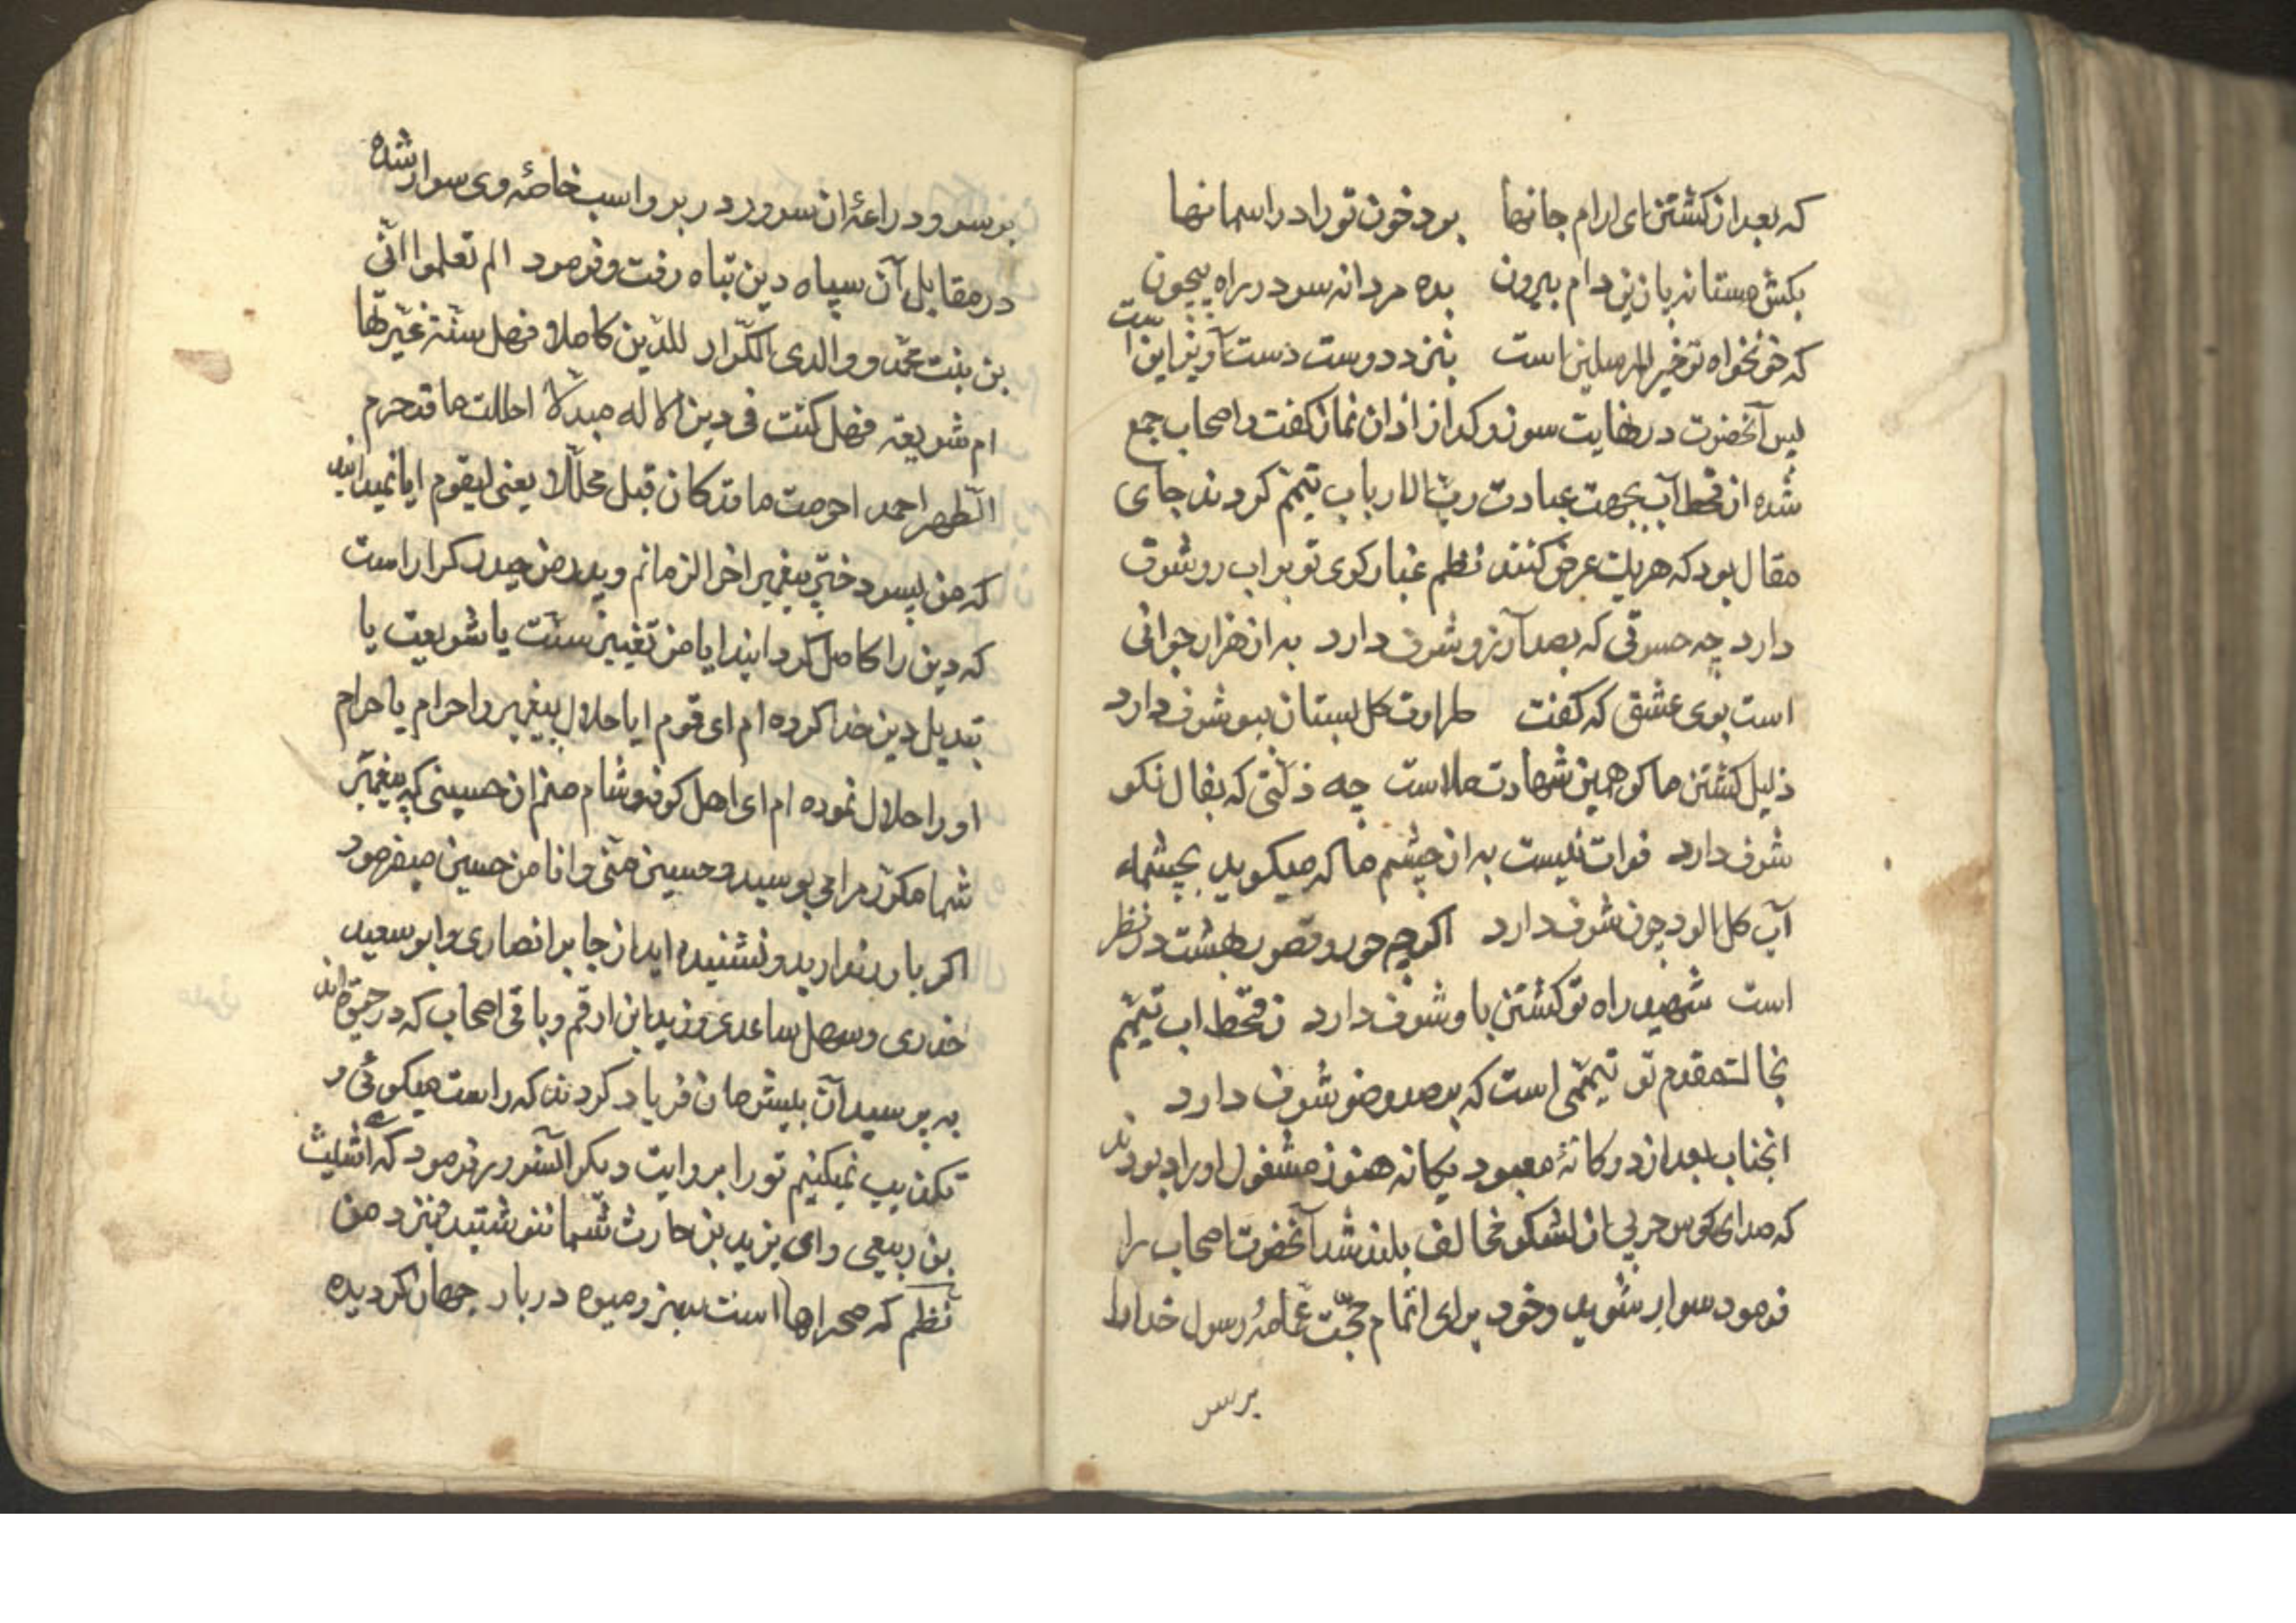 که بعد از کشتن ای ارام جانها بود خون تو را در اسمانها
بکش مستانه پا زین دام بیرون بده مردانه سر در راه بیچون
که خونخواه تو خیر المرسلین است بنزد دوست دست آویز این است
پس آنحضرت در نهایت سوز و کداز اذان نماز کفت و اصحاب جمع
شده از قحط آب بجهت عبادت رب الارباب تیمم کردند جای
مقال بود که هریک عرض کنند نظم غبار کوی تو بر اب رو شرف
دارد چه حسرتی که بصد آرزو شرف دارد به از هزار جوانی
است بوی عشقی که کفت طراوت کل بستان ببو شرف دارد
ذلیل کشتن ما کو همین شهادت ماست چه ذلتی که بفال نکو
شرف دارد فرات نیست به از چشم ما که میکوید بچشمهاء
آب کل الود چون شرف دارد اکرچه حور و قصور بهشت در نظر
است شهید راه تو کشتن باو شرف دارد ز قحط اب تیمم
بخاک مقدم تو تیممی است که بصد وضو شرف دارد
انجناب بعد از دوکانهٔ معبود یکانه هنوز مشغول اوراد بودند
که صدای کوس حربی از لشکر مخالف بلند شد آنحضرت اصحاب را
فرمود سوار شوید و خود برای اتمام حجّت عمّامهٔ رسول خدا را
بر سر
بر سر و دراعهٔ ان سرور در بر و اسب خاصهٔ وی سوار شده
در مقابل آن سپاه دین تباه رفت و فرمود الم تعلموا انّی
بن بنت محمّد و والدی الکرّار للدّین کاملا فهل سنّة غیّرتها
ام شریعة فهل کنت فی دین الاله مبدلا احللت ما قد حرم
الطّهر احمد احرمت ما قد کان قبل محلّلا یعنی لیقوم ایا نمیدانید
که من پسر دختر پیغمبر اخر الزمانم و پدر من حیدر کرار است
که دین را کامل کردانید ایا من تغییر سنّت یا شریعت یا
تبدیل دین خدا کرده ام ای قوم ایا حلال پیغمبر را حرام یا حرام
او را حلال نموده ام ای اهل کوفه و شام منم ان حسینی که پیغمبر
شما مکرّر مرا می بوسید و حسین منّی و انا من حسین میفرمود
اکر باور ندارید و نشنیده اید از جابر انصاری و ابو سعید
خدری و سهل ساعدی و زید ابن ارقم و باقی اصحاب که در حیوة اند
به پرسید آن بیشرمان فریاد کردند که راست میکوئی و
تکذیب نمیکنیم تو را بروایت دیکر آنسرور فرمود که ای شلیث
بن ربیعی و ای یزید بن حارث شما ننوشتید بنزد من
نظم که صحراها است سبز و میوه در بار جهان کردیده